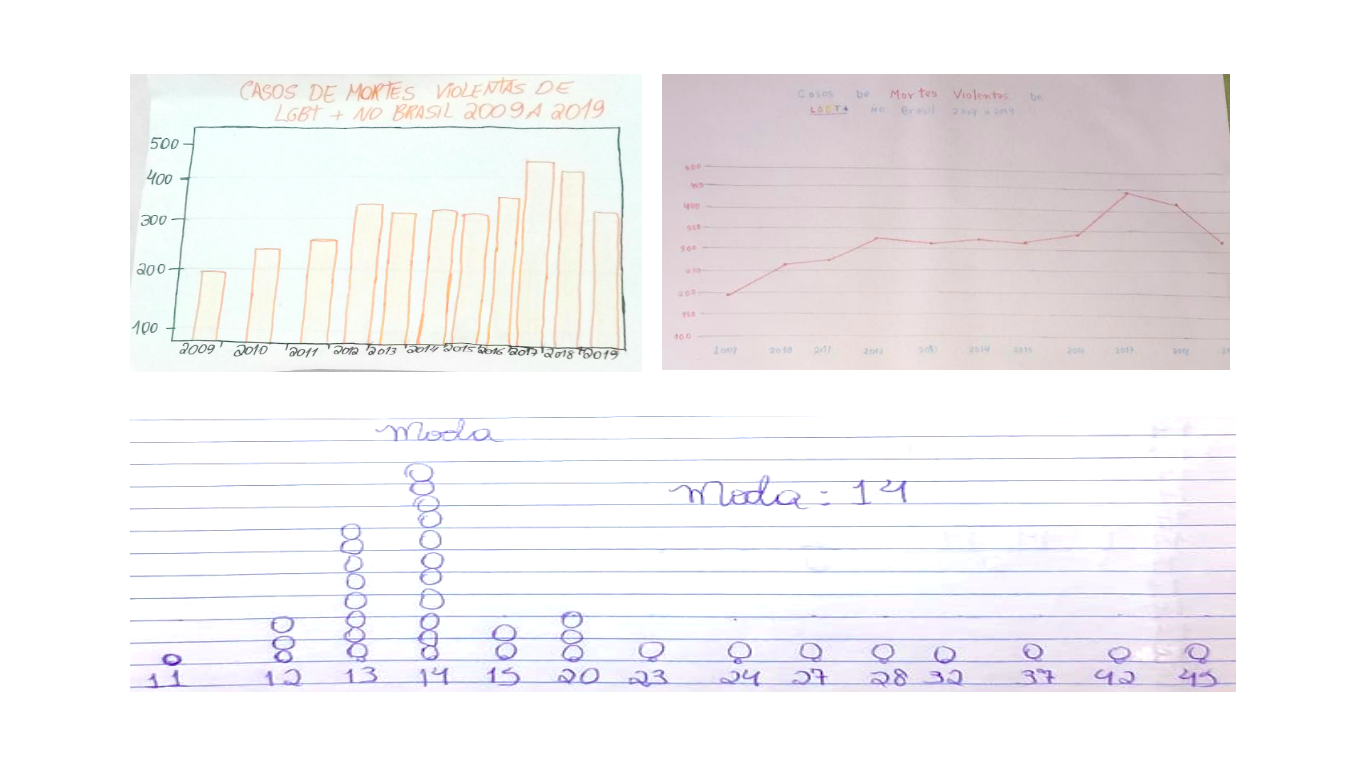 CASOS DE MORTES VIOLENTAS DE
LGBT + NO BRASIL 2009 A 2019
500
400
300
200
100
2009 2010 2011 2012 2013 2014 2015 2016 2017 2018 2019
Casos de Mortes Violentas de
LGBT+ no Brasil
400
300
200
150
100
2009 2010 2011 2012 2013 2014 2015 2016 2017 2018
Moda
Moda = 14
11 12 13 14 15 20 23 24 27 28 32 37 42 45